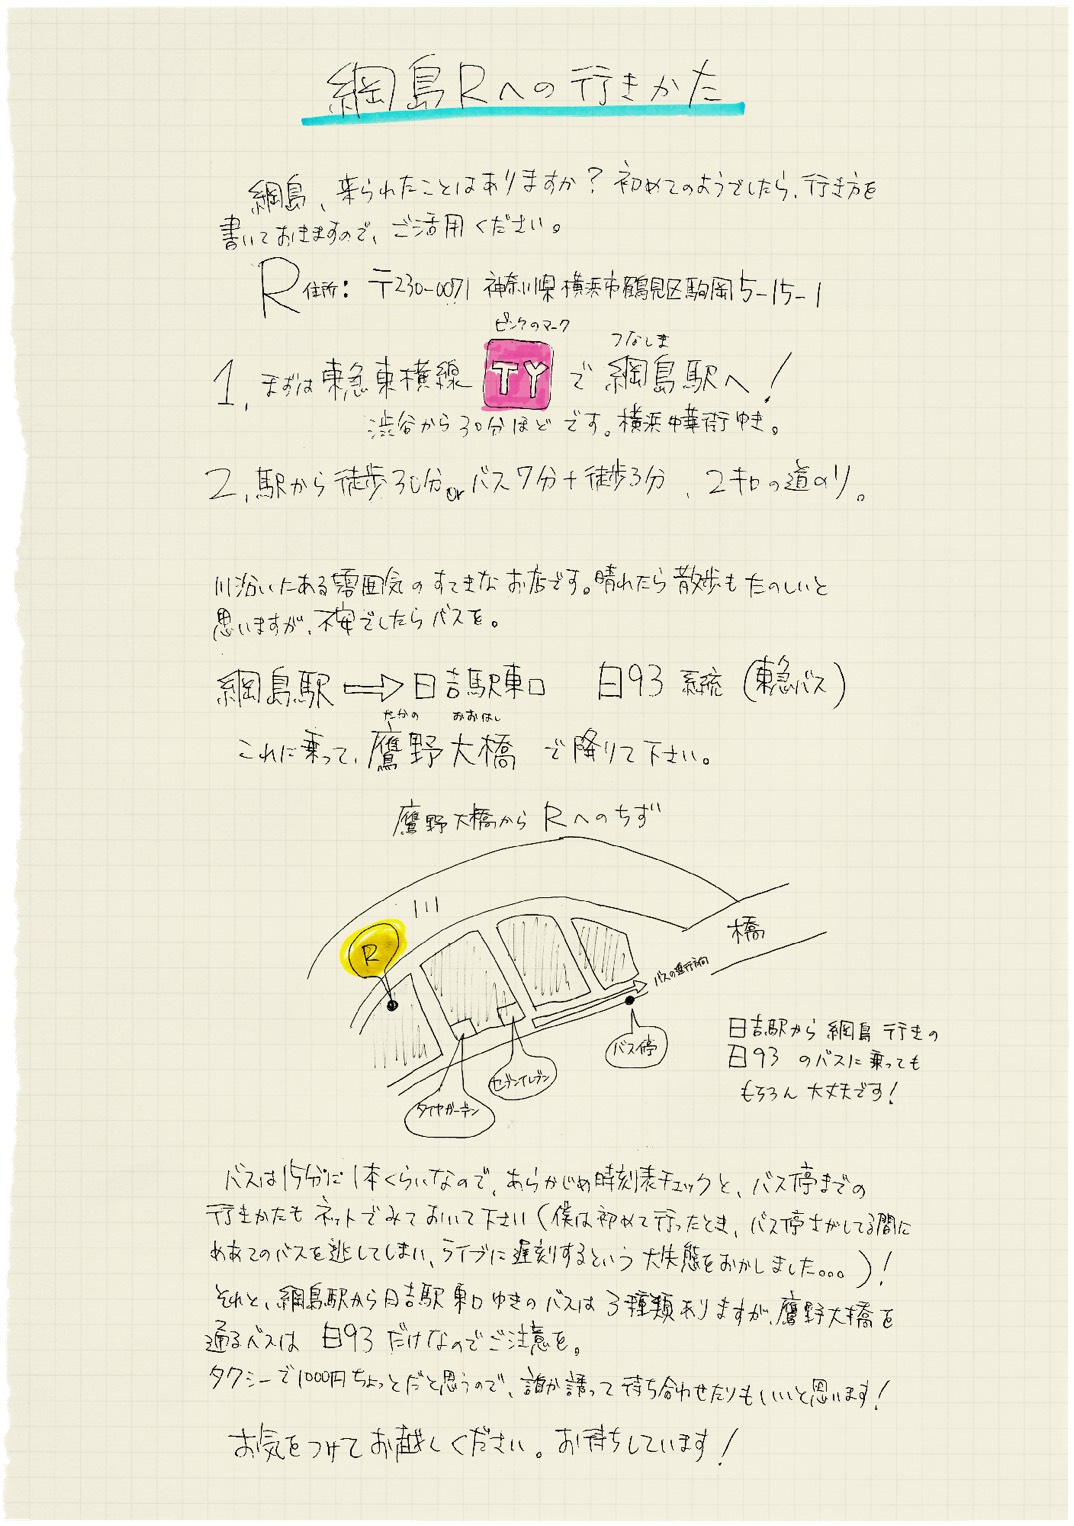 綱島Rへの行きかた
綱島、来られたことはありますか？初めてのようでしたら、行き方を
書いておきますので、ご活用ください。
R住所：〒230-0071 神奈川県横浜市鶴見区駒岡5-15-1
ピンクのマーク
つなしま
1, まずは東急東横線 TY で 綱島駅へ！
渋谷から30分ほどです。横浜中華街ゆき。
2, 駅から徒歩30分orバス7分+徒歩3分、2キロの道のり。
川沿いにある雰囲気のすてきなお店です。晴れたら散歩もたのしいと
思いますが、不安でしたらバスを。
綱島駅⇨日吉駅東口 日93系統(東急バス)
たかの おおはし
これに乗って、鷹野大橋で降りて下さい。
鷹野大橋からRへのちず
川
橋
R
バスの進行方向
バス停
セブンイレブン
ダイヤガーデン
日吉駅から綱島行きの
日93のバスに乗っても
もちろん大丈夫です！
バスは15分に1本くらいなので、あらかじめ時刻表チェックと、バス停までの
行きかたもネットでみておいて下さい(僕は初めて行ったとき、バス停さがしてる間に
めあてのバスを逃してしまい、ライブに遅刻するという大失態をおかしました...)！
それと、綱島駅から日吉駅東口ゆきのバスは3種類ありますが、鷹野大橋を
通るバスは日93だけなのでご注意を。
タクシーで1000円ちょっとだと思うので、誰か誘って待ち合わせたりもいいと思います！
お気をつけてお越しください。お待ちしています！